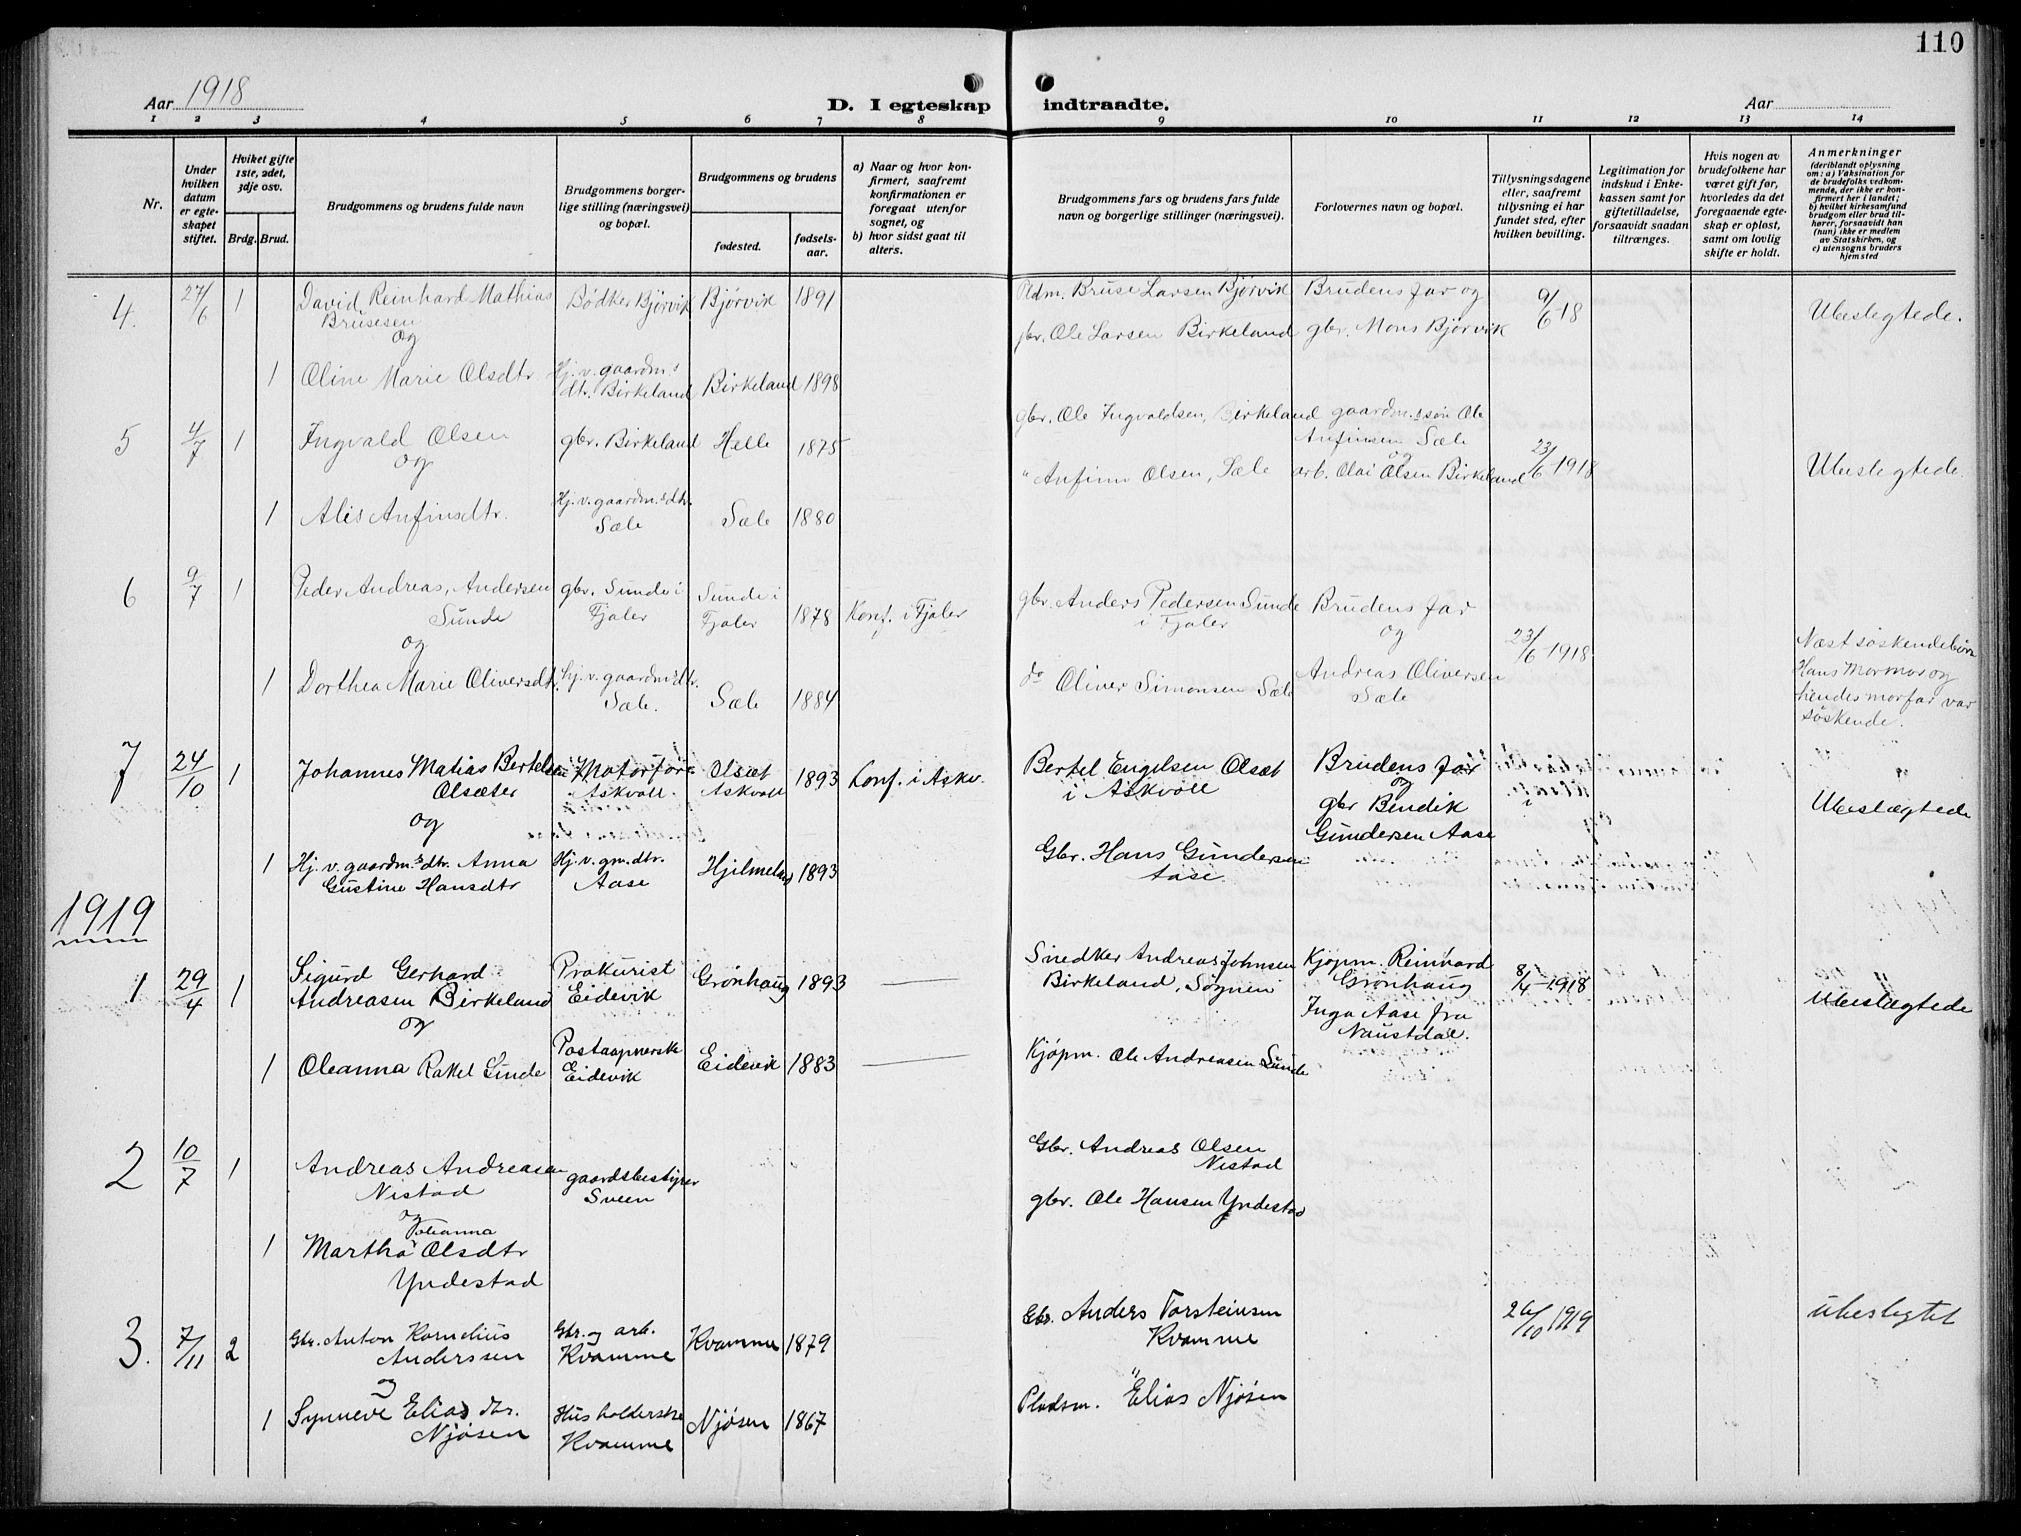 110
Aar 1918
D. I egteskap indtraadte.
Aar
1 2 3 4 5 6 7 8 9 10 11 12 13 14
Nr.
Under hvilken datum er egteskapet stiftet.
Hviket gifte 1ste, 2det, 3dje osv.
Brdg. Brud.
Brudgommens og brudens fulde navn
Brudgommens borgerlige stilling (næringsvei) og bopæl.
Brudgommens og brudens
fødested.
fødselsaar.
a) Naar og hvor konfirmert, saafremt konfirmationen er foregaat utenfor sognet, og
b) hvor sidst gaat til alters.
Brudgommens fars og brudens fars fulde navn og borgerlige stillinger (næringsvei).
Forlovernes navn og bopæl.
Tillysningsdagene eller, saafremt tillysning ei har fundet sted, efter hvilken bevilling.
Legitimation for indskud i Enkekassen samt for giftetilladelse, forsaavidt saadan tiltrænges.
Hvis nogen av brudefolkene har været gift før, hvorledes da det foregaaende egteskap er opløst, samt om lovlig skifte er holdt.
Anmerkninger
(deriblandt oplysning om: a) Vaksination for de brudefolks vedkommende, der ikke er konfirmert her i landet; b) hvilket kirkesamfund brudgom eller brud tilhører, forsaavidt han (hun) ikke er medlem av Statskirken, og c) utensogns bruders hjemsted
4. 27/6 1 David Reinhard Mathias Brusesen Bødker Bjørvik Bjørvik 1891 Pldm. Bruse Larsen Bjørvik Brudens far og 9/6 18 Ubeslegtede.
og
gbr. Ole Larsen Birkeland gbr. Mons Bjørvik
1 Oline Marie Olsdtr Hj.v. gaardm.s dtr. Birkeland Birkeland 1898
5 4/7 1 Ingvald Olsen gbr. Birkeland Helle 1875 gbr. Ole Ingvaldsen, Birkeland gaardm.s søn Ole Anfinsen Sæle 23/6 1918 Ubeslegtede.
og
" Anfinn Olsen, Sæle og arb. Olai Olsen Birkeland
1 Alis Anfinsdtr. Hj.v. gaardm.s dtr. Sæle Sæle 1880
6 9/7 1 Peder Andreas, Andersen Sunde gbr. Sunde i Fjaler Sunde i Fjaler 1878 Konf. i Fjaler gbr. Anders Pedersen Sunde i Fjaler Brudens far 23/6 1918 Næstsøskendebørn
og og Hans mormor og
1 Dorthea Marie Oliversdtr. Hj.v. gaardm.s dtr. Sæle. Sæle 1884 do Oliver Simonsen Sæle Andreas Oliversen Sæle hendes morfar var søskende.
7 24/10 1 Johannes Matias Bertelsen Olsæter Motorfører Askvoll Olsæt Askvoll 1893 Konf. i Askv. Bertel Engelsen Olsæt i Askvoll Brudens far Ubeslægtede
og og
gbr Bendik Gundersen Aase
1 Hj.v. gaardm.s dtr. Anna Gustine Hansdtr Hj.v. gm.dtr. Aase Hjelmeland 1893 Gbr. Hans Gundersen Aase
1919
1 29/4 1 Sigurd Gerhard Andreasen Birkeland Prokurist Eidevik Grønhaug 1893 — Snedker Andreas Johnsen Birkeland, Søgnen Kjøpm. Reinhard Grønhaug 8/4 1918 Ubeslægtede
og Inga Aase fra Naustdal.
1 Oleanna Rakel Sunde Postaapnerske Eidevik Eidevik 1883 — Kjøpm. Ole Andreasen Sunde
2 10/7 1 Andreas Andreasen Nistad gaardsbestyrer Sveen Gbr. Andreas Olsen Nistad
og
gbr. Ole Hansen Yndestad
1 Martha Johanna Olsdtr Yndestad
3. 7/11 2 Gbr. Anton Kornelius Anderssen Gbr. og arb. Kvamme Kvamme 1879 Gbr. Anders Torsteinsen Kvamme 26/10 1919 ubeslegtet
og
1 Synneve Elias dtr. Njøsen Husholderske Kvamme Njøsen 1867 Pladsm. Elias Njøsen